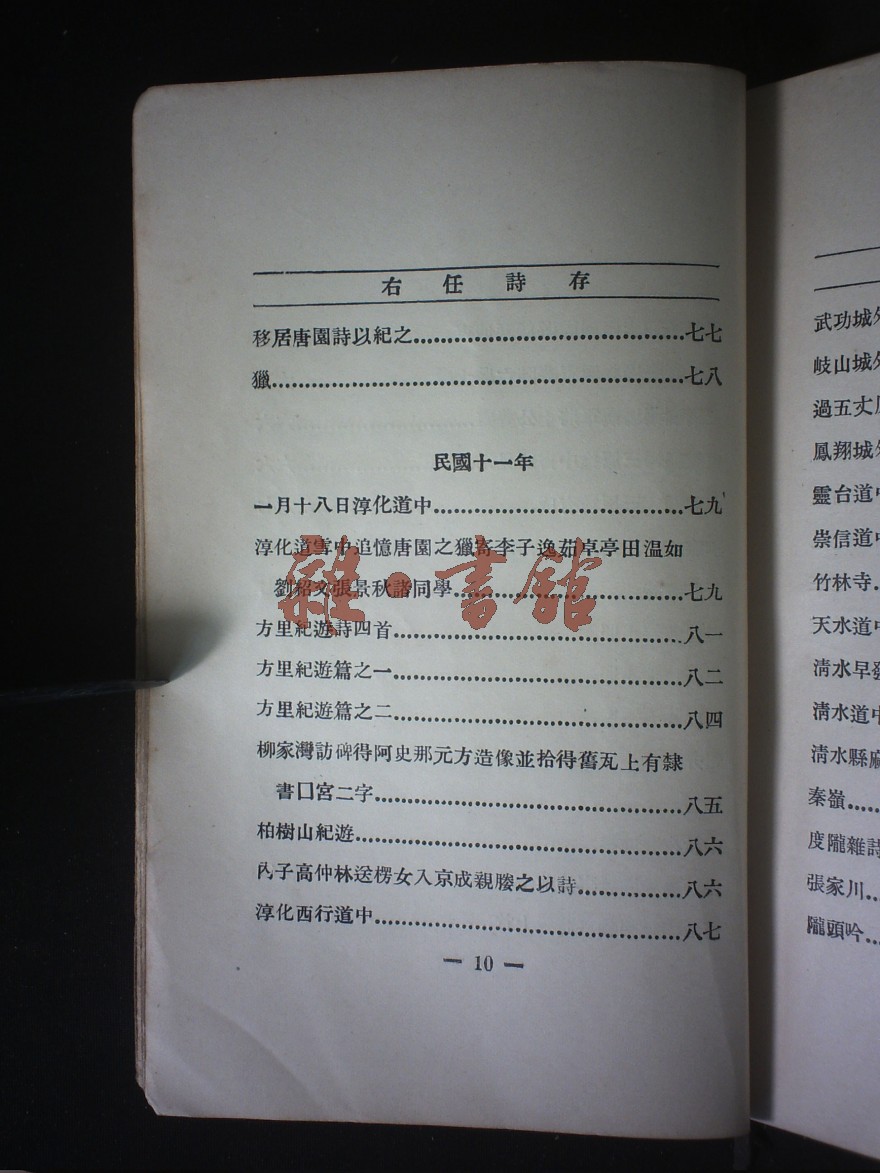 右任詩存
移居唐園詩以紀之……七七
獵……七八
民國十一年
一月十八日淳化道中……七九
淳化道雪中追憶唐園之獵寄李子逸茹卓亭田溫如
劉紹文張景秋諸同學……七九
方里紀遊詩四首……八一
方里紀遊篇之一……八二
方里紀遊篇之二……八四
柳家灣訪碑得阿史那元方造像並拾得舊瓦上有隸
書囗宮二字……八五
柏樹山紀遊……八六
內子高仲林送楞女入京成親媵之以詩……八六
淳化西行道中……八七
— 10 —
雜·書館
武功城
岐山城
過五丈
鳳翔城
靈台道
崇信道
竹林寺
天水道
清水早
清水道
清水縣
秦嶺……
度隴雜
張家川
隴頭吟